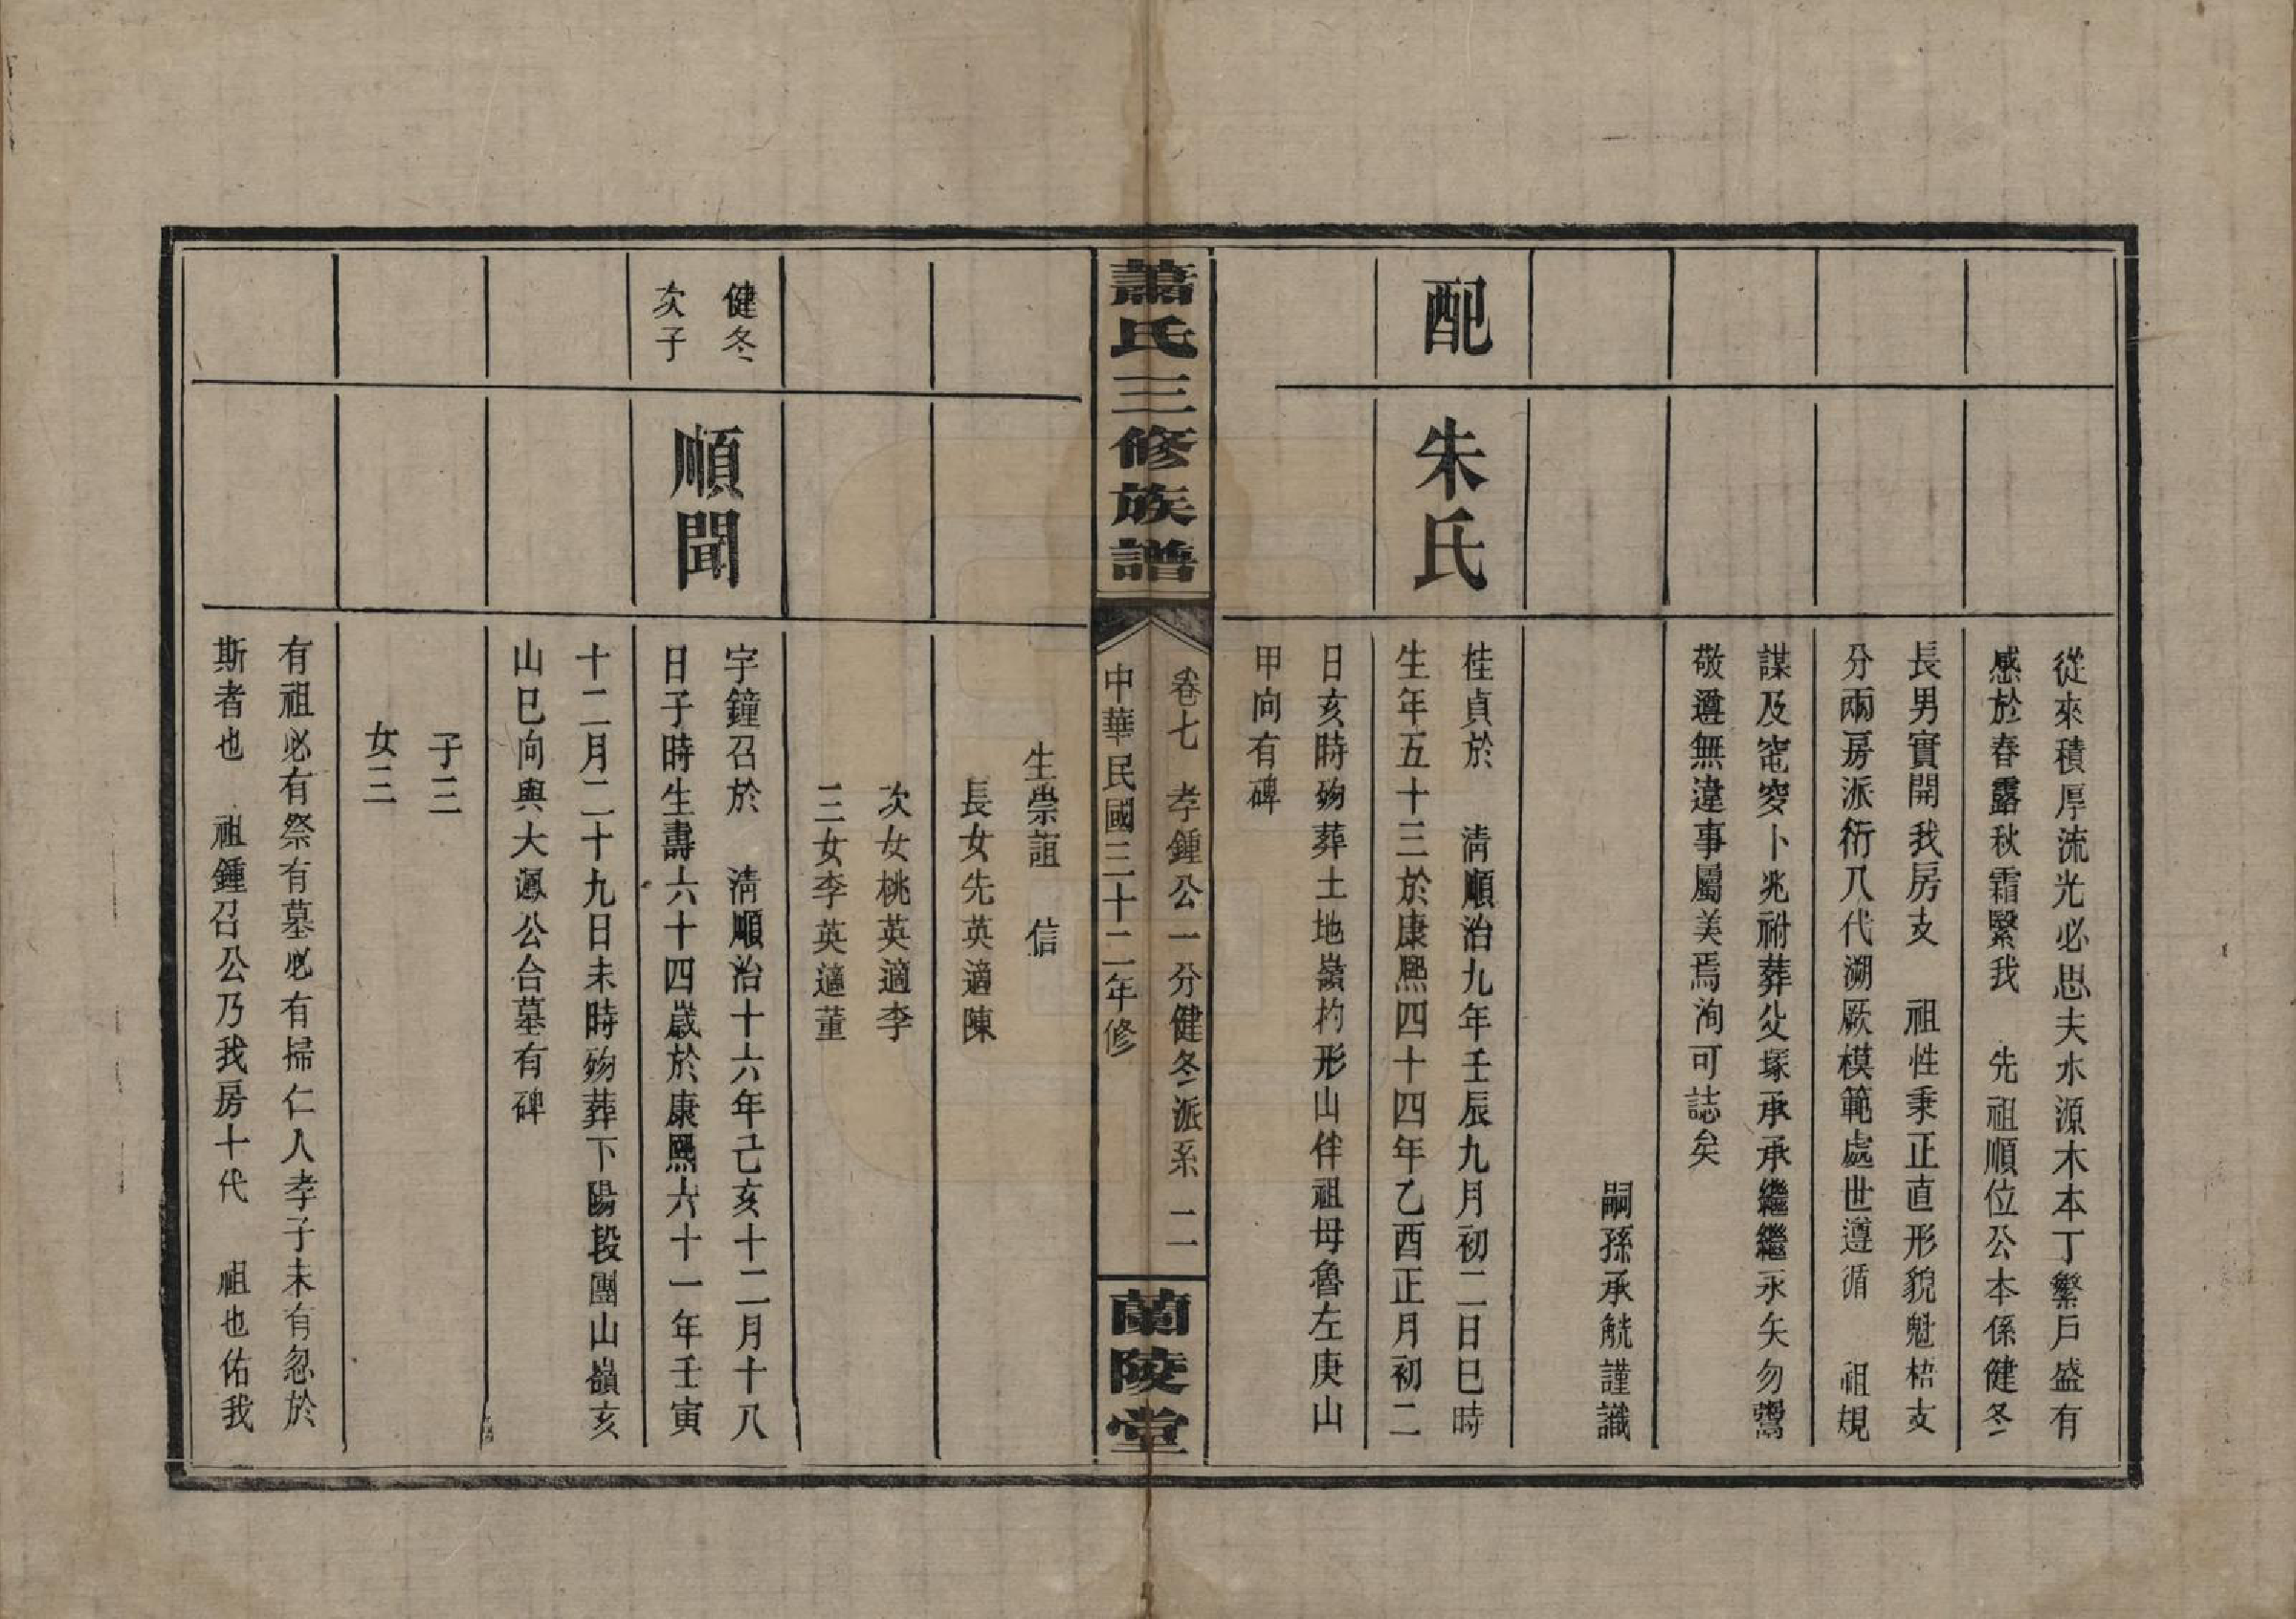 從來積厚流光必思夫水源木本丁繁戶盛有
感於春露秋霜緊我　先祖順位公本係健冬
長男實開我房支　祖性秉正直形貌魁梧支
分兩房派衍八代溯厥模範處世遵循　祖規
謀及窀穸卜兆祔葬父塚承承繼繼永矢勿鶩
敬遵無違事屬美焉洵可誌矣
嗣孫承觥謹識
配
朱氏
桂貞於　清順治九年壬辰九月初二日巳時
生年五十三於康熙四十四年乙酉正月初二
日亥時歿葬土地嶺杓形山伴祖母魯左庚山
甲向有碑
蕭氏三修族譜
卷七　孝鍾公一分健冬派系　二
中華民國三十二年修
蘭陵堂
生崇誼　信
長女先英適陳
次女桃英適李
三女李英適董
健冬
次子
順聞
字鐘召於　清順治十六年己亥十二月十八
日子時生壽六十四歲於康熙六十一年壬寅
十二月二十九日未時歿葬下陽段團山嶺亥
山巳向與大鳳公合墓有碑
子三
女三
有祖必有祭有墓必有掃仁人孝子未有忽於
斯者也　祖鍾召公乃我房十代　祖也佑我